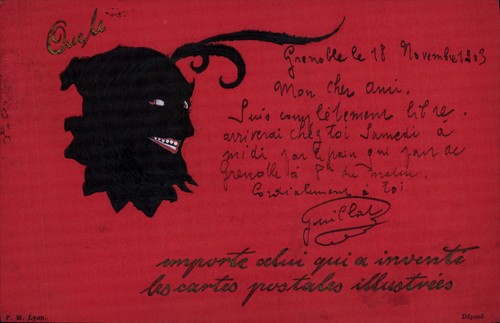 Que le
Grenoble le 18 Novembre 1903
Mon cher ami.
Suis complètement libre.
arriverai chez toi Samedi à
midi par le train qui part de
Grenoble à du matin.
Cordialement à toi
Guillat
emporte celui qui a inventé
les cartes postales illustrées
P. H. Lyon.
Déposé